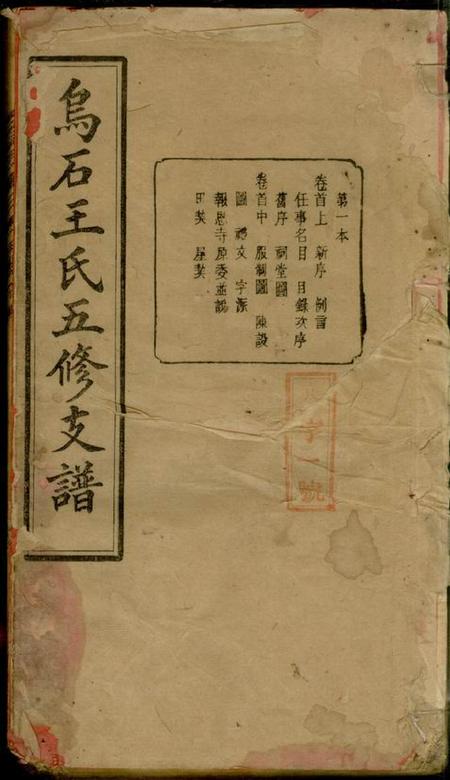 烏石王氏五修支譜
第一本
卷首上 新序 例言
任事名目 目錄次序
舊序 祠堂圖
卷首中 服制圖 陳設
圖 禮文 字派
報恩寺原委並議
田契 屋契
字一號